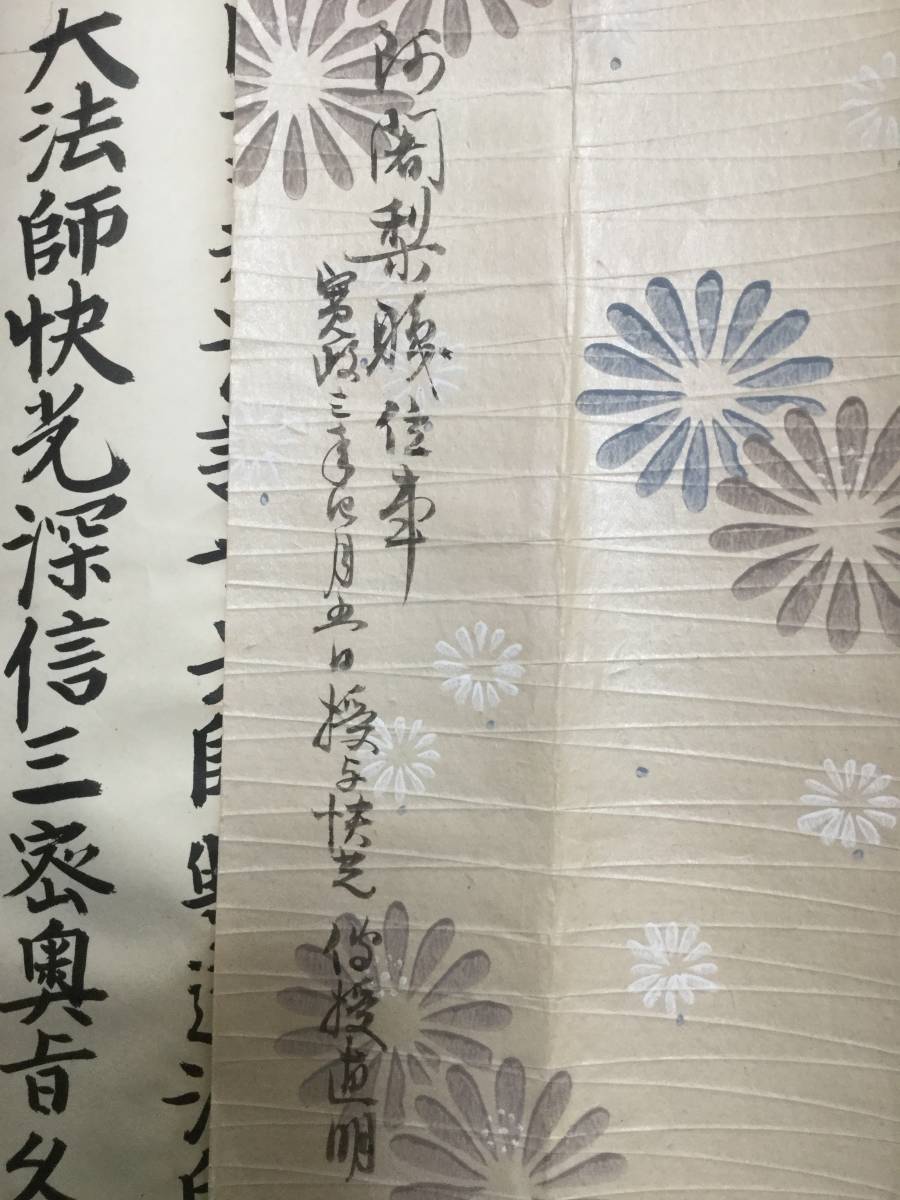 阿闍梨職位事
寛政三年四月五日授与快光 傳授道明
大法師快光深信三密奥旨久